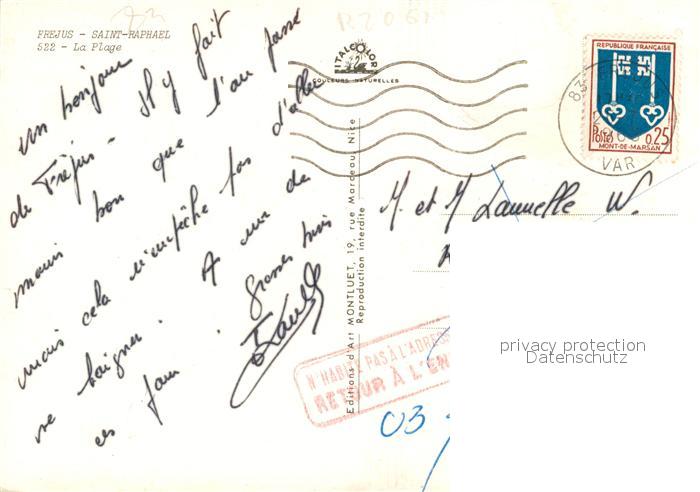 R2061
FREJUS - SAINT-RAPHAEL
522 - La Plage
Un bonjour
de Fréjus - Il y fait
moins bon que l'an passé
mais cela n'empêche pas d'aller
se baigner. A un de
ces jours. Grosses bises
ITALCOLOR
COULEURS NATURELLES
Editions d'Art MONTLUET, 19, rue Marceau, Nice
Reproduction interdite
REPUBLIQUE FRANÇAISE
POSTES 0,25
MONT-DE-MARSAN
83
VAR
M. et M Lannelle W.
N'HABITE PAS À L'ADRESSE
RETOUR À L'EN
03
privacy protection
Datenschutz